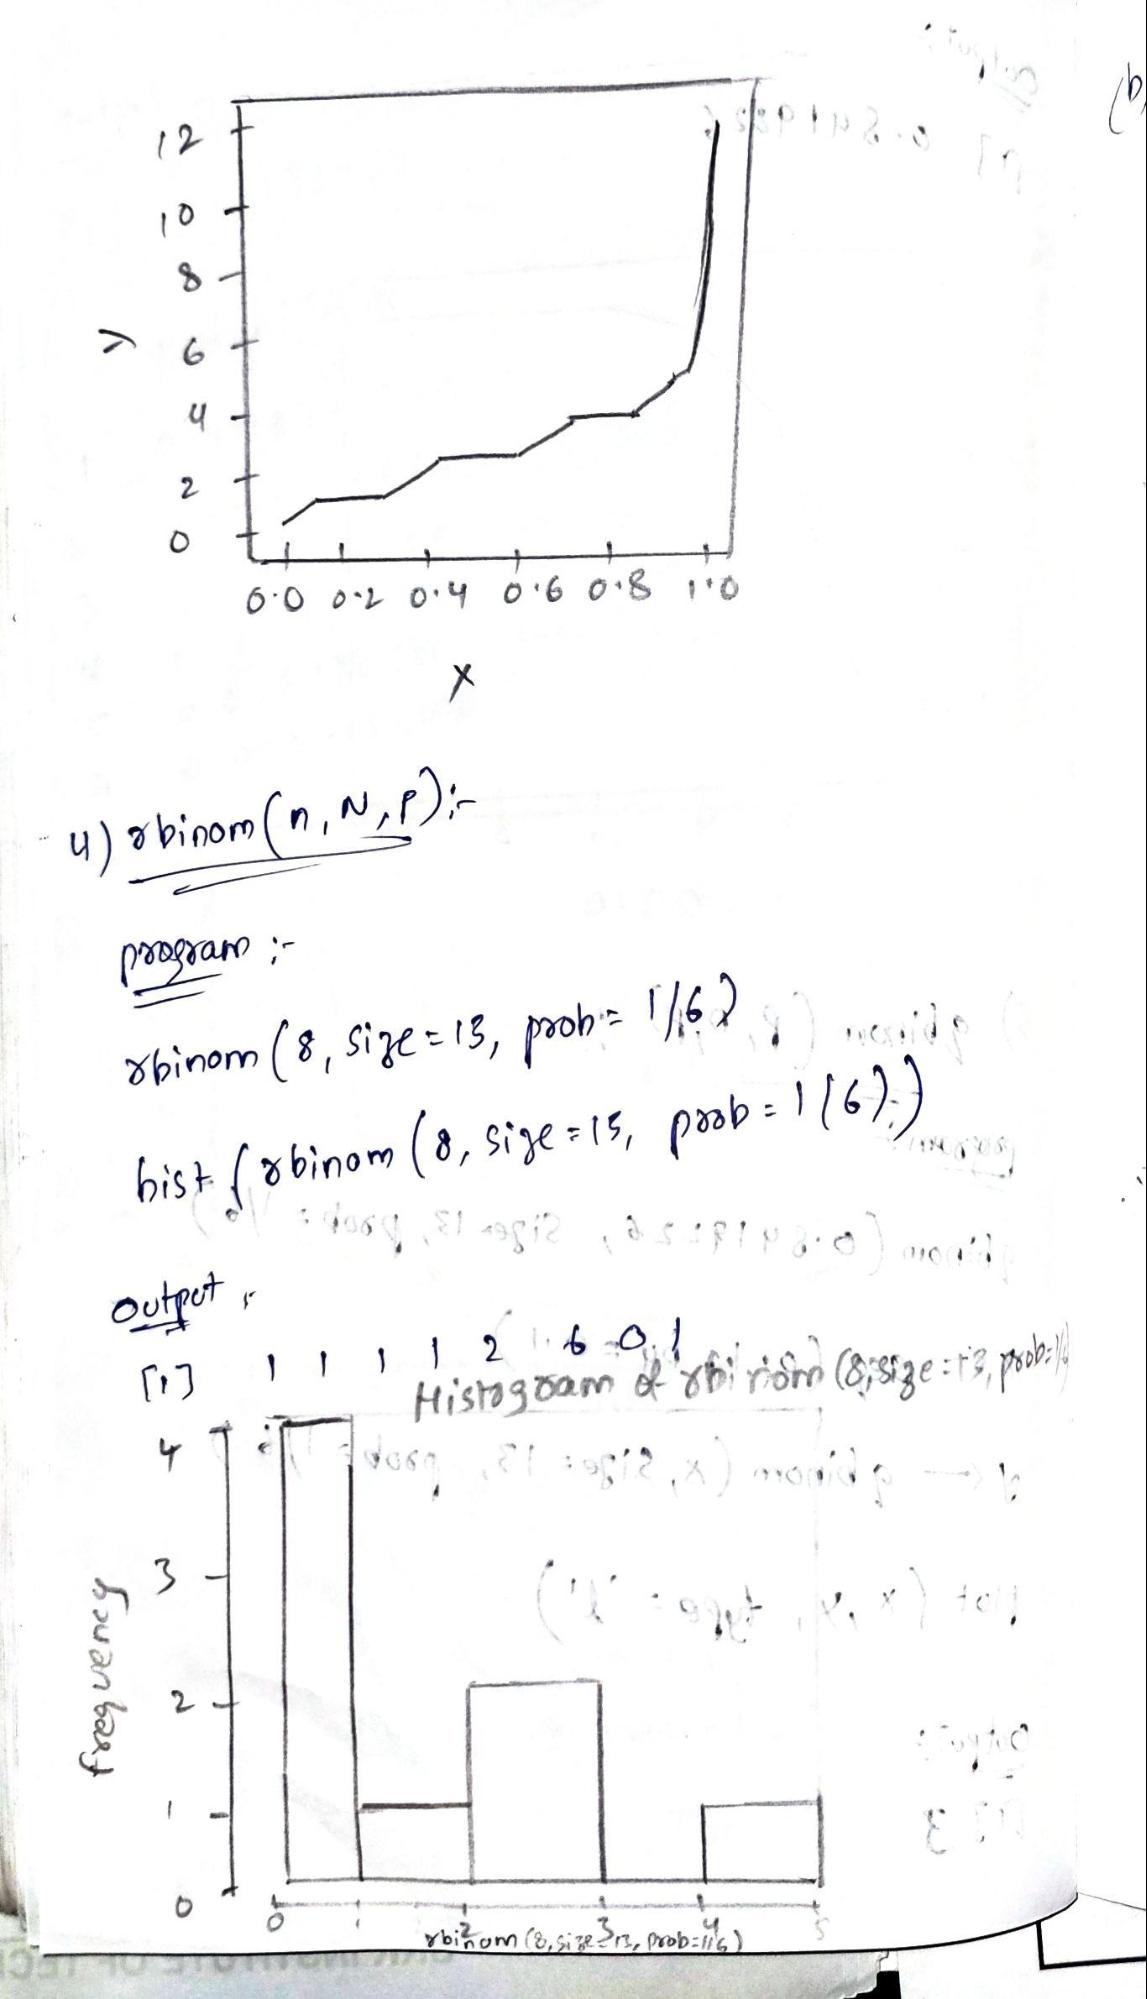 12
10
8
6
4
2
0
y
0.0 0.2 0.4 0.6 0.8 1.0
x
4) rbinom (n, N, P):-
program :-
rbinom (8, size = 13, prob = 1/6)
hist (rbinom (8, size = 13, prob = 1/6))
Output :-
[1] 1 1 1 1 2 6 0 1
Histogram of rbinom (8, size = 13, prob = 1/6)
4
3
2
1
0
frequency
0 1 2 3 4 5
rbinom (8, size = 13, prob = 1/6)